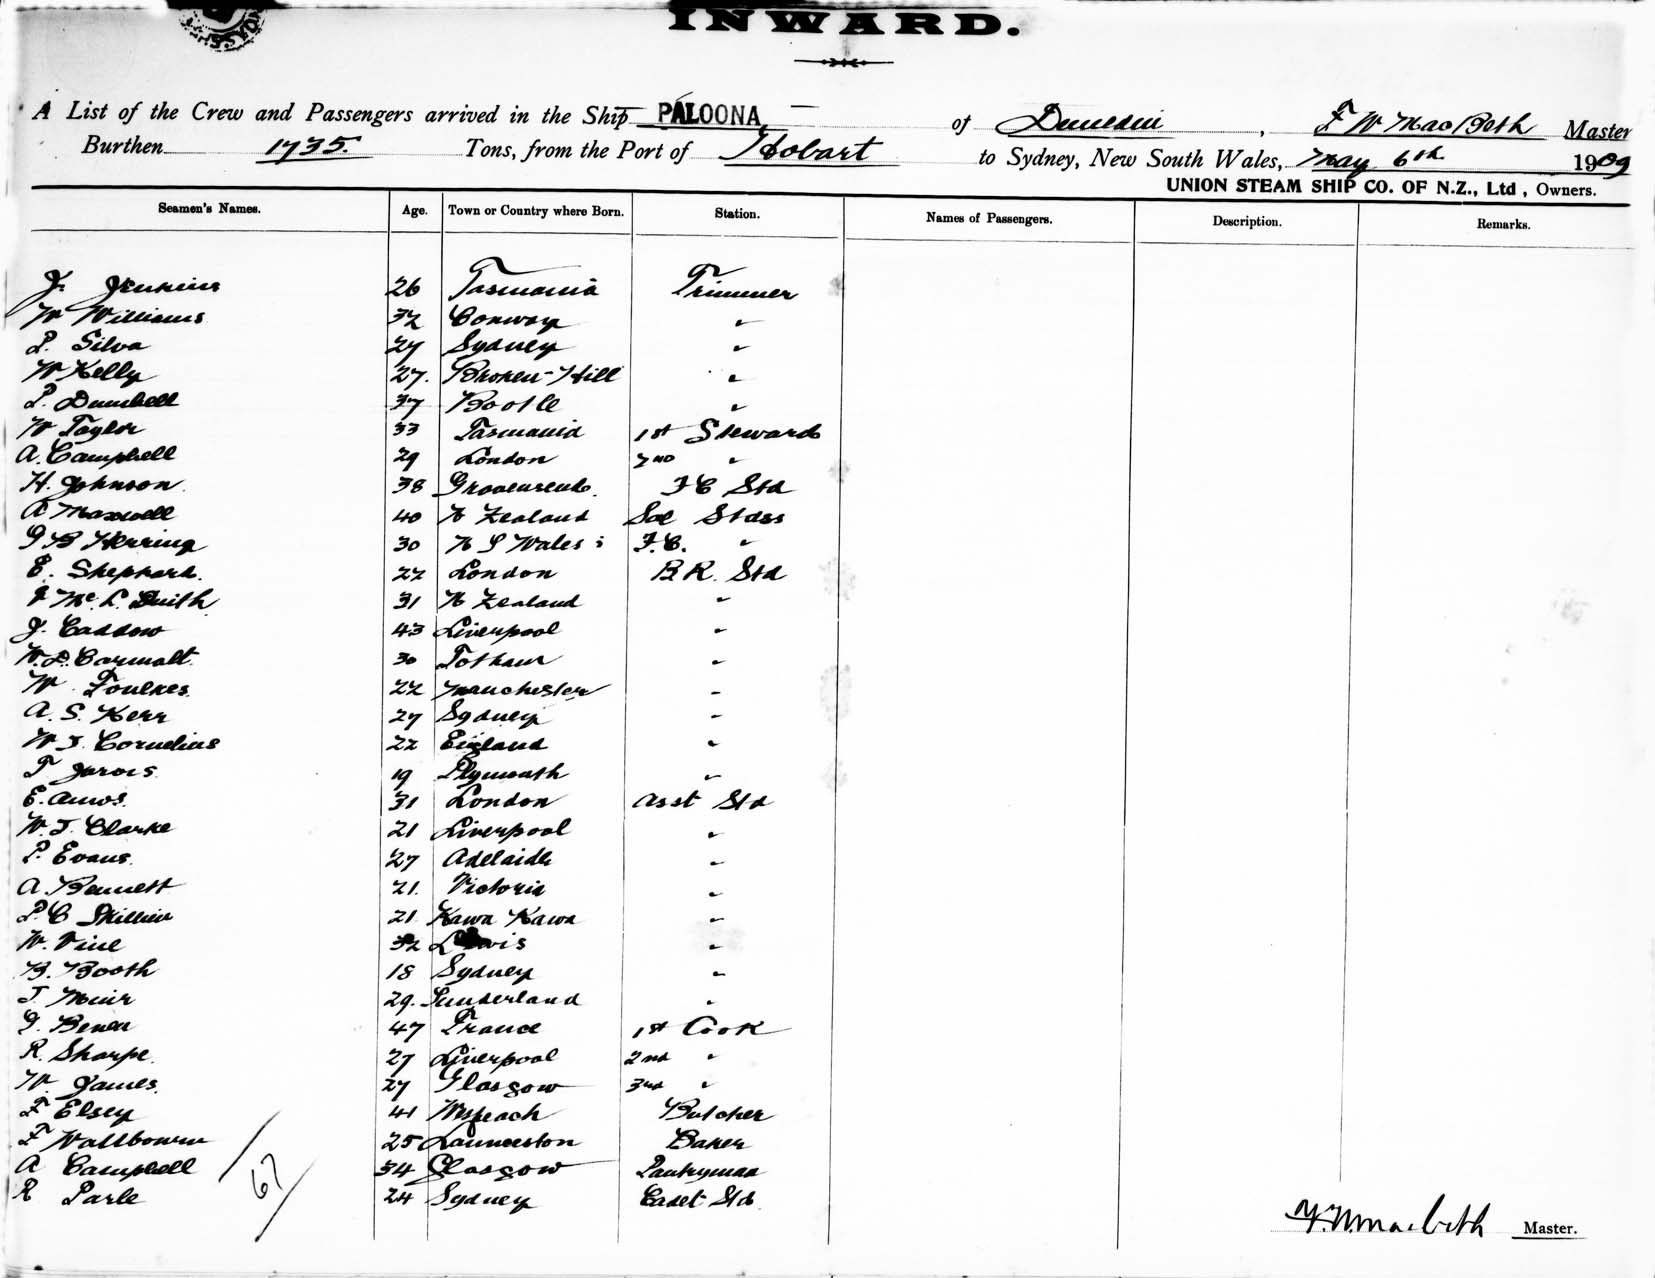 INWARD.
A List of the Crew and Passengers arrived in the Ship PALOONA of Dunedin, F W MacBeth Master
Burthen 1735. Tons, from the Port of Hobart to Sydney, New South Wales, May 6th 1909
UNION STEAM SHIP CO. OF N.Z., Ltd, Owners.
Seamen's Names. Age. Town or Country where Born. Station. Names of Passengers. Description. Remarks.
J. Jenkins 26 Tasmania Trimmer
W Williams 32 Conway "
P. Silva 27 Sydney "
W Kelly 27. Broken Hill "
P. Dumbell 37 Bootle "
W Taylor 33 Tasmania 1st Steward
A. Campbell 29 London 2nd "
H. Johnson 38 Gravesend. F C Std
A Maxwell 40 N Zealand Sal Stdss
G B Herring 30 N S Wales F.C. "
E. Shephard. 22 London B.R. Std
J Mc L. Smith 31 N Zealand "
J. Caddow 43 Liverpool "
W. L. Carmalt. 30 "
W. Foulkes. 22 Manchester "
A. S. Kerr 27 Sydney "
W. J. Cornelius 22 England "
T Jarvis 19 Plymouth "
E. Amos. 31 London Asst Std
W. J. Clarke 21 Liverpool "
P. Evans. 27 Adelaide "
A. Bennett 21. Victoria "
P. C Skillin 21 Kawa Kawa "
W. Vine 32 "
B. Booth 18 Sydney "
J. Muir 29. Sunderland "
G. 47 France 1st Cook
R. Sharpe. 27 Liverpool 2nd "
W. James. 27 Glasgow 3rd "
F Elsey 41 Butcher
F Wattbourn 25 Launceston Baker
A Campbell 34 Glasgow Pantryman
R Parle 24 Sydney Cadet Std.
67
F. W. Macbeth Master.